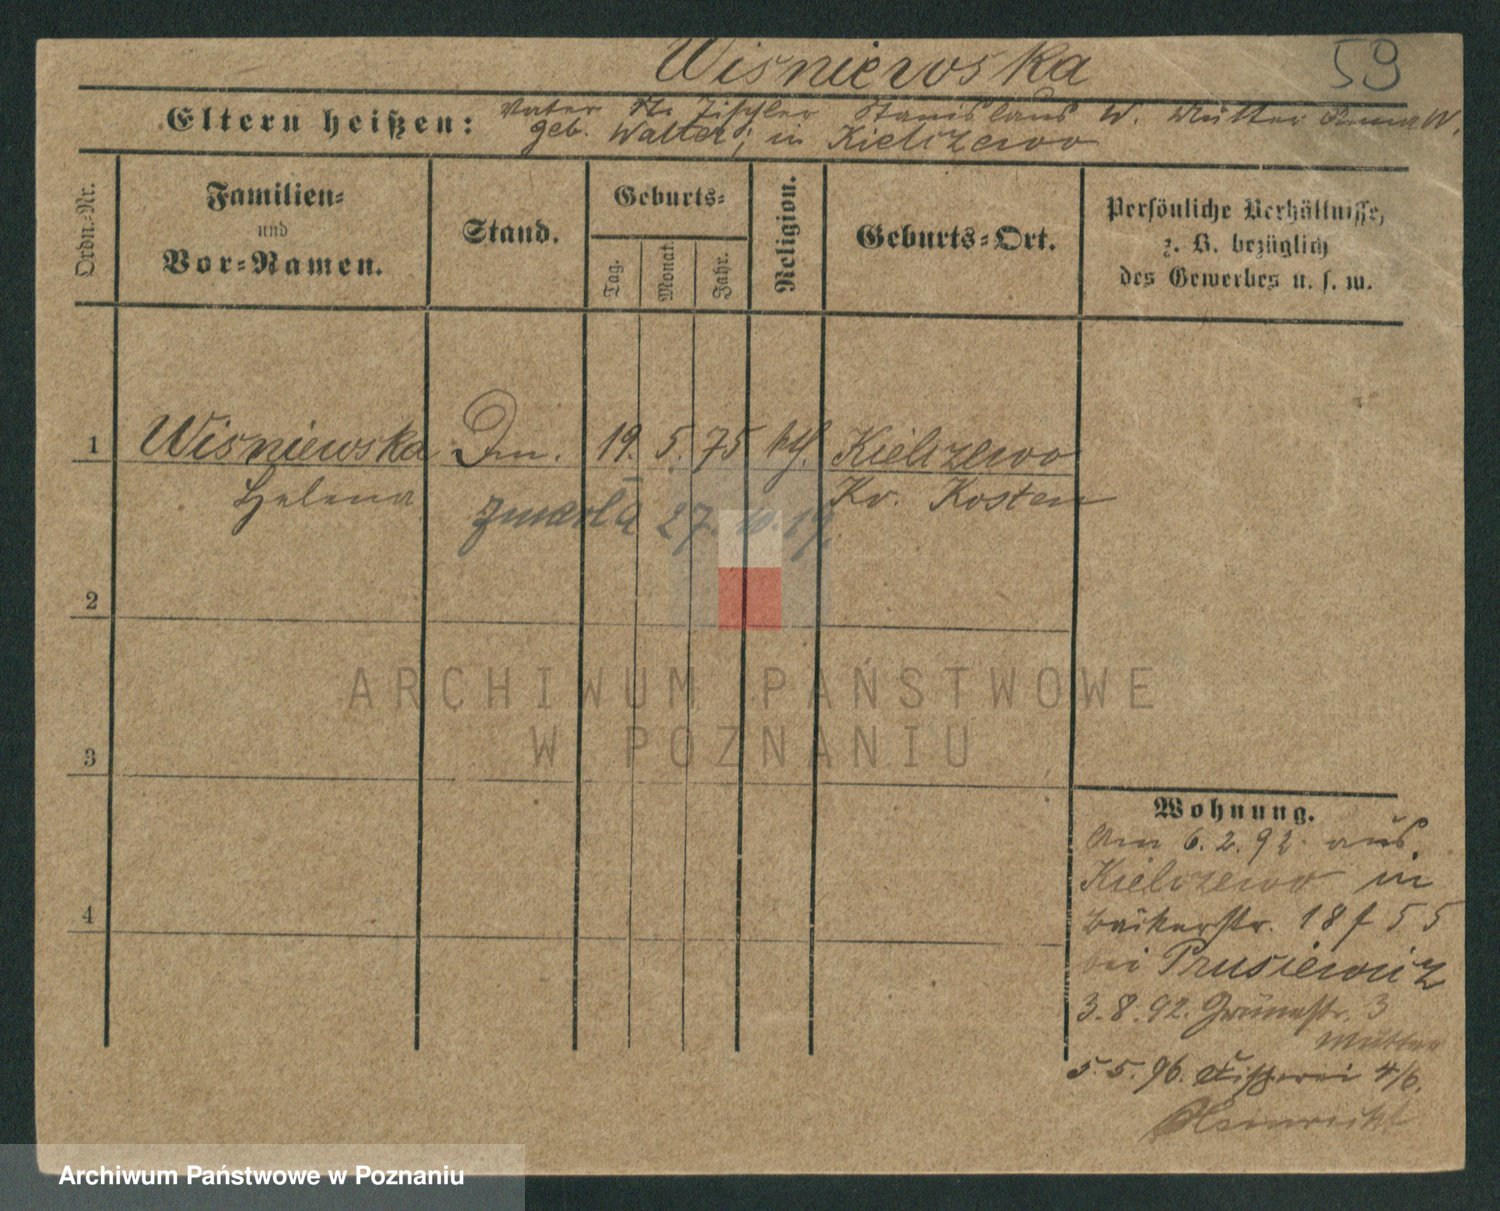 Wisniewska
59
Eltern heißen: Vater Tischler Stanislaus W. Mutter W.
geb. Walter, in Kielczewo
Ordn.-Nr.
Familien-
und
Vor-Namen.
Stand.
Geburts-
Tag.
Monat.
Jahr.
Religion.
Geburts-Ort.
Persönliche Verhältnisse,
z. B. bezüglich
des Gewerbes u. s. w.
1 Wisniewska 19. 5. 75 kth. Kielczewo
Helena
Kr. Kosten
zmarła 27. 10. 19.
2
3
4
Wohnung.
Am 6. 2. 92 aus
Kielczewo in
Bäckerstr. 18
bei Prusiewicz
3. 8. 92. Grünestr. 3
Mutter
5. 5. 96. Fischerei 4/6.
ARCHIWUM PAŃSTWOWE
W POZNANIU
Archiwum Państwowe w Poznaniu